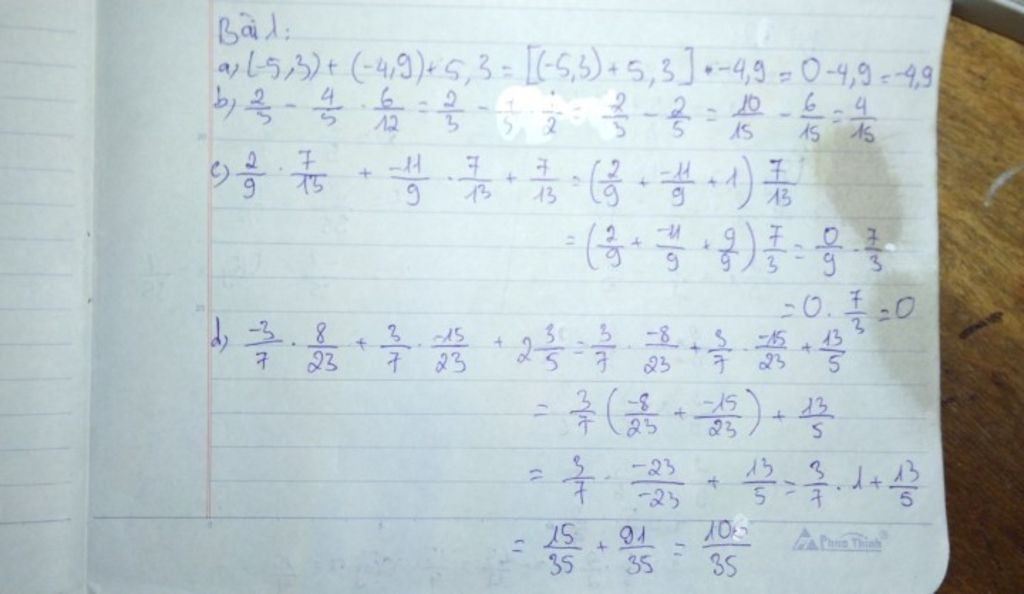 Bài 1:
a) (-5,3) + (-4,9) + 5,3 = [(-5,3) + 5,3] + -4,9 = 0 - 4,9 = -4,9
b) 2/3 - 4/5 . 6/12 = 2/3 - = 2/3 - 2/5 = 10/15 - 6/15 = 4/15
c) 2/9 . 7/13 + -11/9 . 7/13 + 7/13 = (2/9 + -11/9 + 1) 7/13
= (2/9 + -11/9 + 9/9) 7/3 = 0/9 . 7/3
= 0 . 7/3 = 0
d) -3/7 . 8/23 + 3/7 . -15/23 + 2 3/5 = 3/7 . -8/23 + 3/7 . -15/23 + 13/5
= 3/7 (-8/23 + -15/23) + 13/5
= 3/7 . -23/-23 + 13/5 = 3/7 . 1 + 13/5
= 15/35 + 91/35 = 106/35
Phuc Thinh